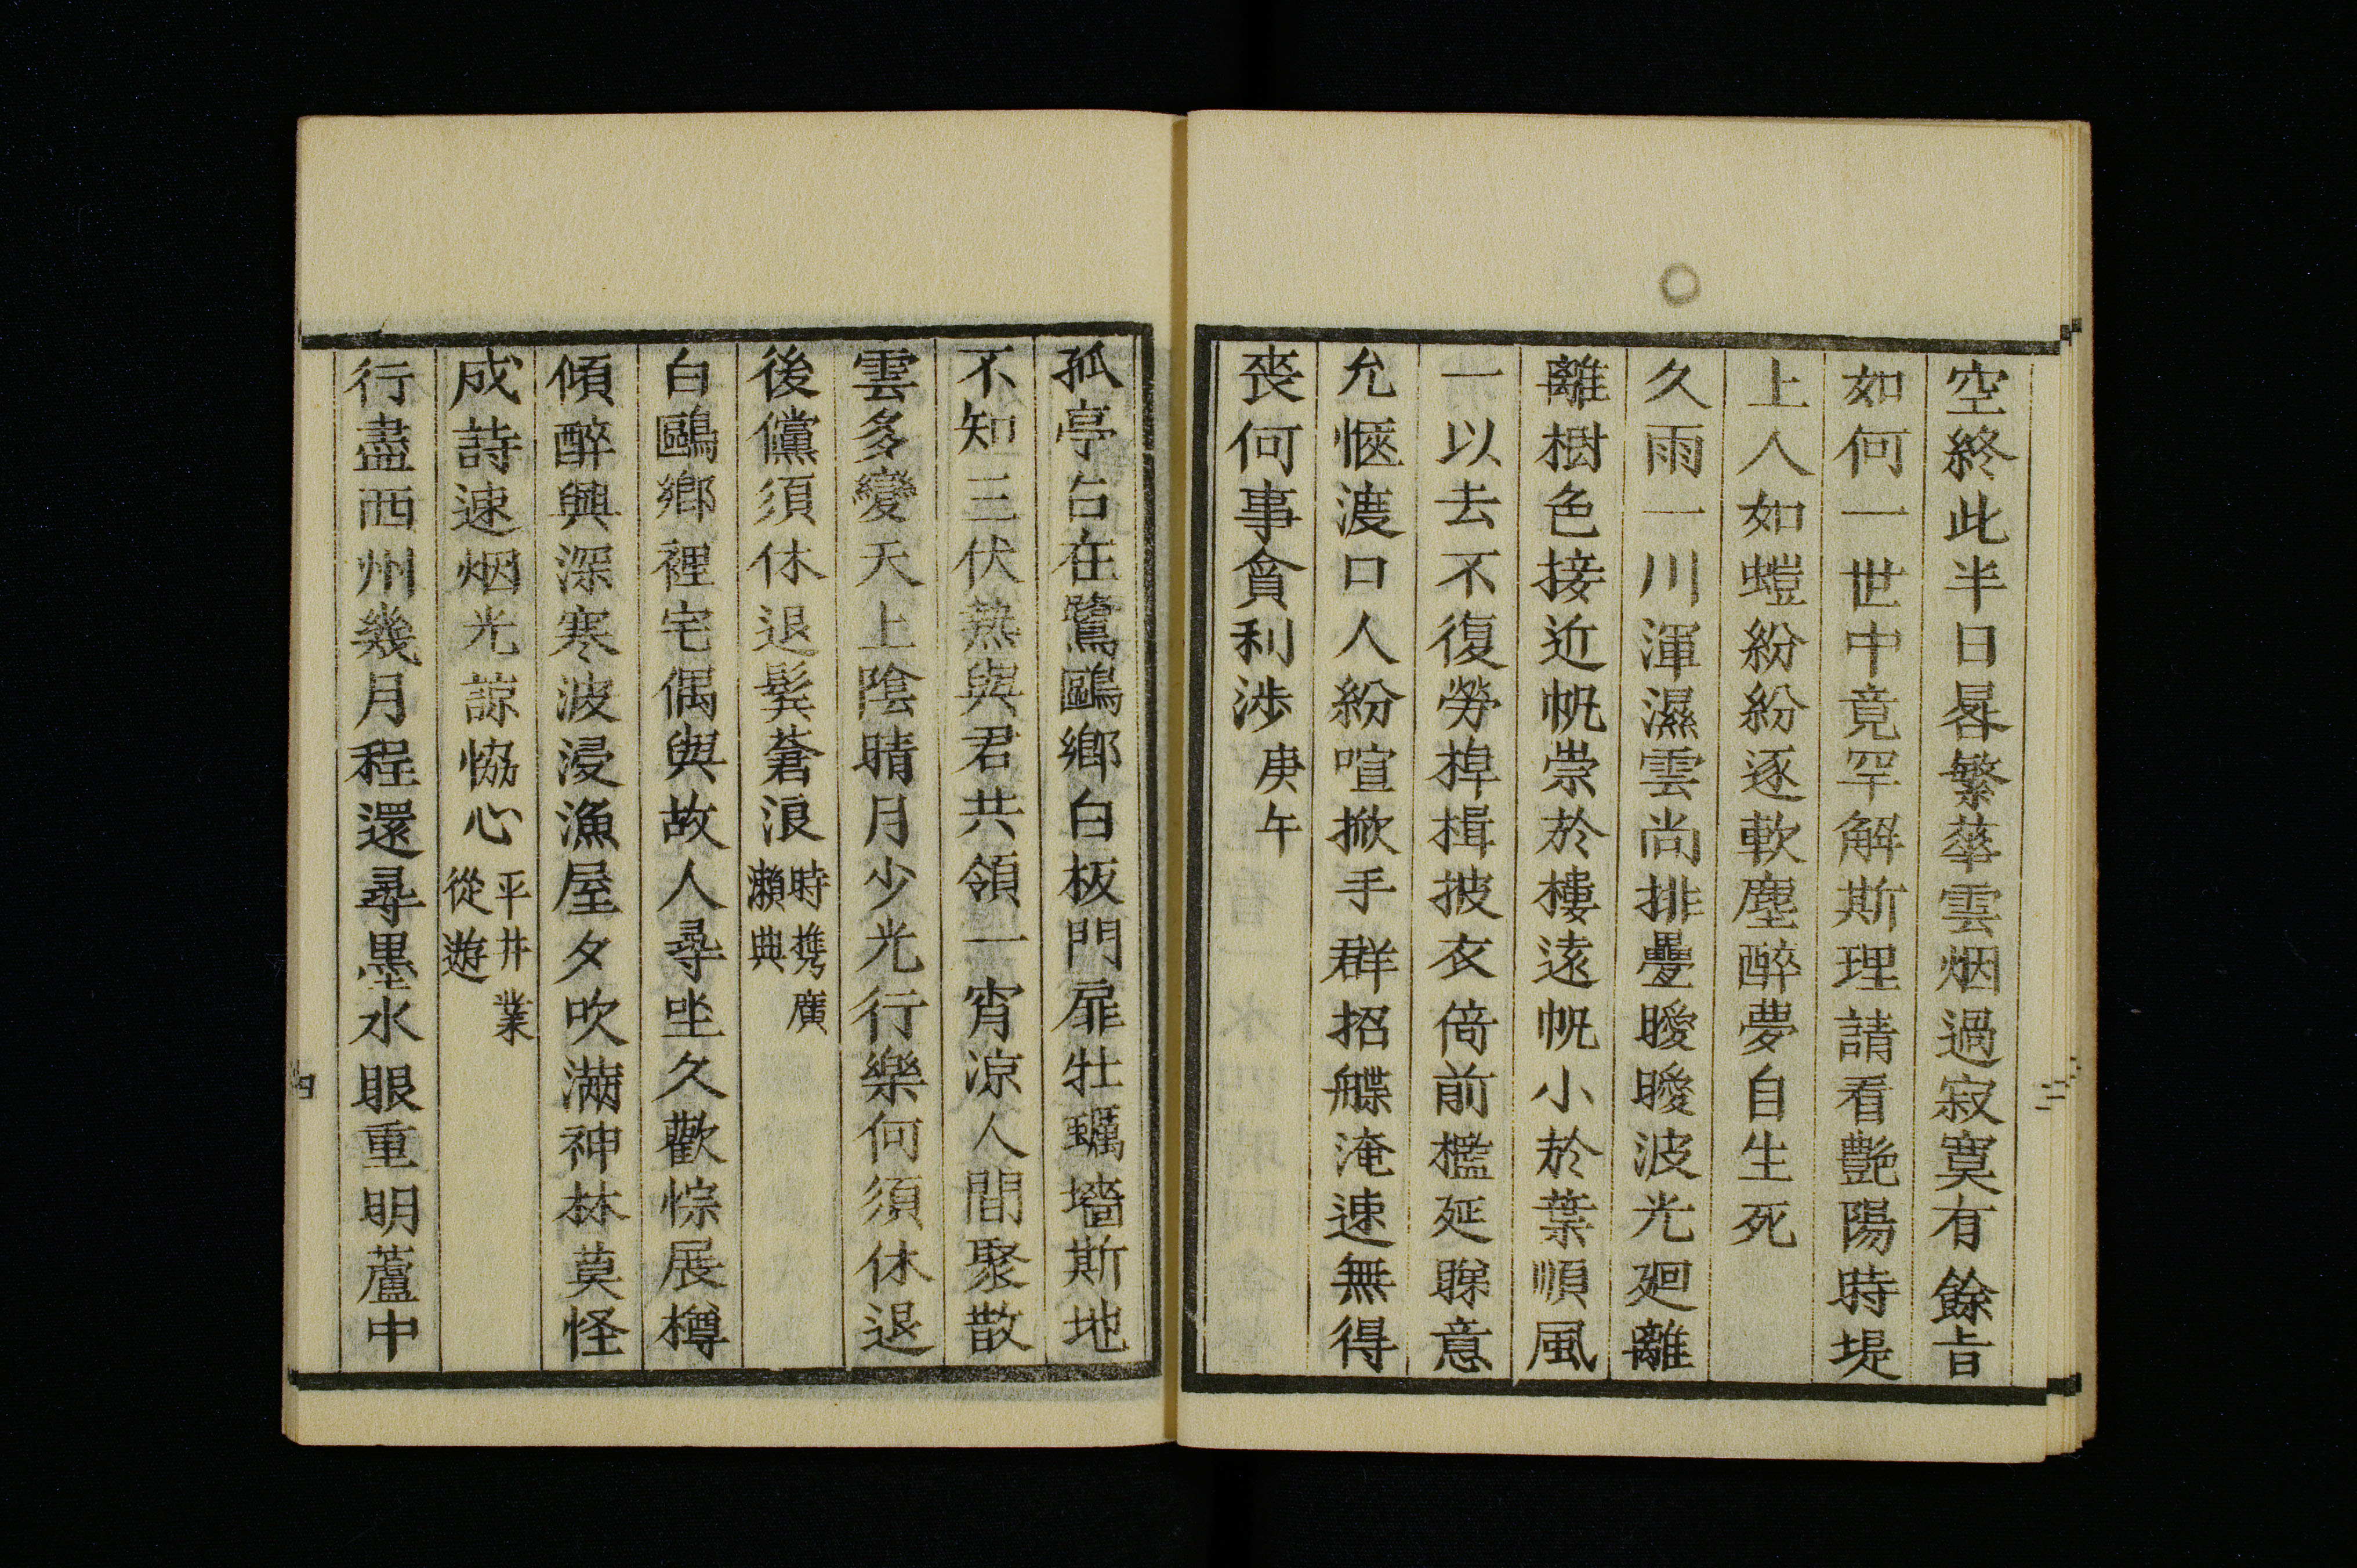 空終此半日晷繁華雲烟過寂寞有餘㫖
如何一世中竟罕解斯理請看艶陽時堤
上人如螘紛紛逐軟塵醉夢自生死
久雨一川渾濕雲尚排疊曖曖波光廻離
離樹色接近帆崇於樓遠帆小於葉順風
一以去不復勞棹楫披衣倚前檻延睇意
允愜渡口人紛喧掀手群招艓淹速無得
喪何事貪利涉 庚午
孤亭台在鷺鷗鄉白板門扉牡蠣墻斯地
不知三伏熱與君共領一宵涼人間聚散
雲多變天上陰晴月少光行樂何須休退
後儻須休退鬂蒼浪 時携廣
瀨典
白鷗鄉裡宅偶與故人尋坐久歡悰展樽
傾醉興深寒波浸漁屋夕吹滿神林莫怪
成詩速烟光諒恊心 平井業
從遊
行盡西州幾月程還尋墨水眼重明蘆中
四